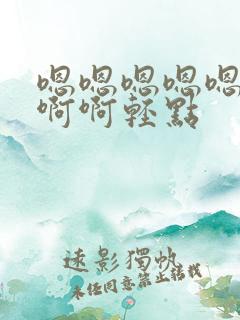 嗯嗯嗯嗯嗯
啊啊轻點
遠影獨帆
未经同意禁止转载